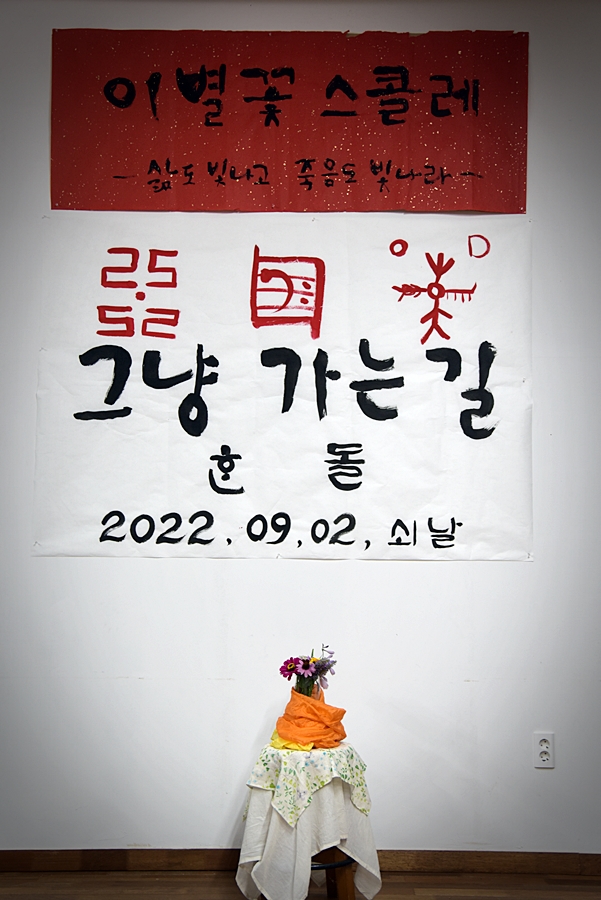 이별꽃 스콜레
- 삶도 빛나고 죽음도 빛나라 -
25
52
그냥 가는 길
한돌
2022. 09, 02, 쇠날